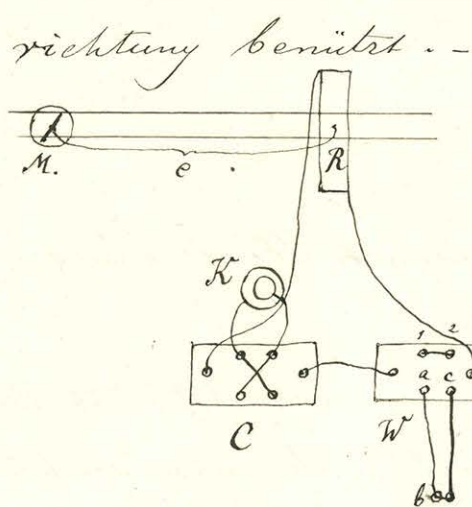 richtung benützt. -
M. e. R
K
1 2
a c
C W
b